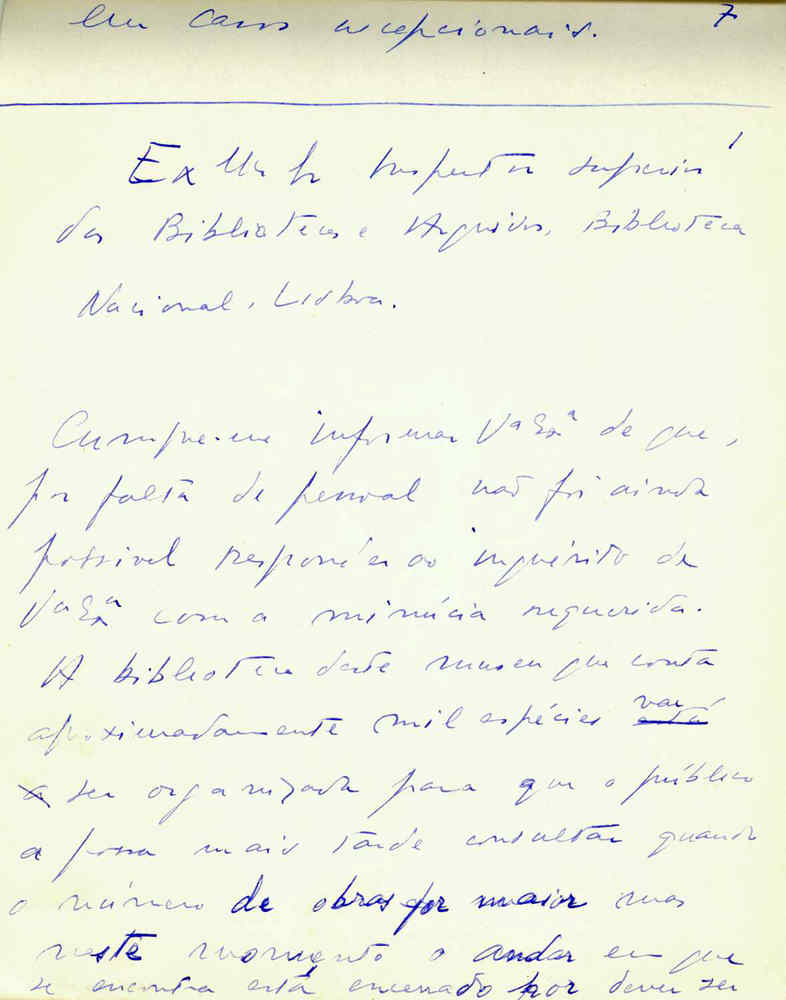 Em casos excepcionais. 7
Ex Mº Sr Inspector superior
das Bibliotecas e Arquivos, Biblioteca
Nacional, Lisboa.
Cumpre-me informar Vª Exª de que,
por falta de pessoal não foi ainda
possivel responder ao inquérito de
Vª Exª com a minúcia requerida.
A biblioteca deste museu que conta
aproximadamente mil espécies vai está
a ser organizada para que o público
a possa mais tarde consultar quando
o número de obras for maior mas
neste momento o andar em que
se encontra está encerrado por dever ser